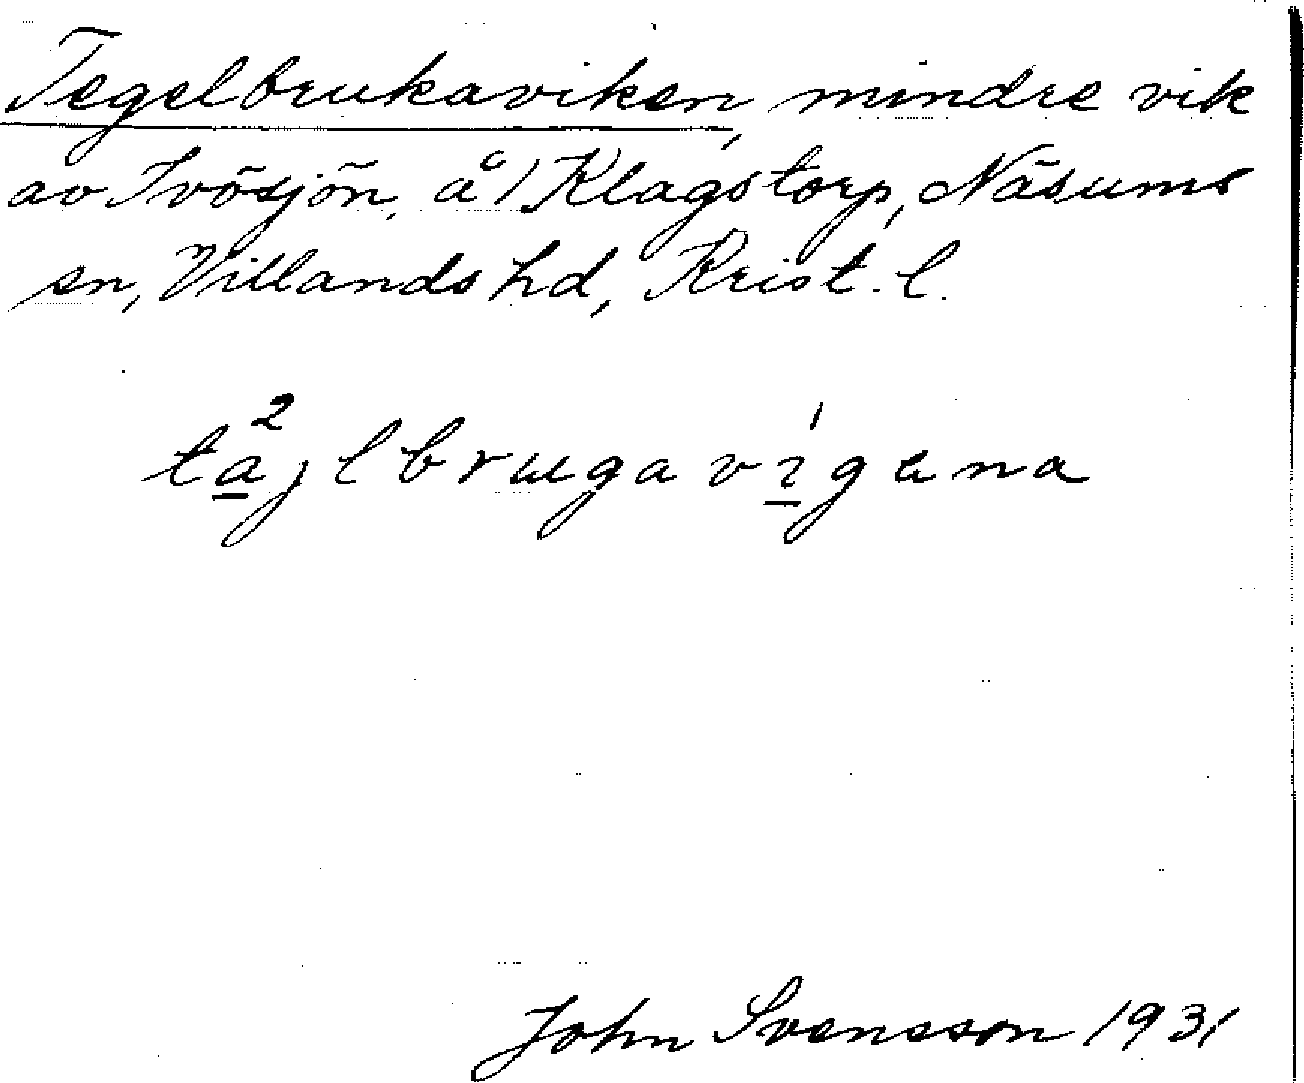 Tegelbrukaviken, mindre vik
av Ivösjön, å 1 Klagstorp, Näsums
sn, Villands hd, Krist. l.
ta²jlbrugavi¹gena
John Svensson 1931